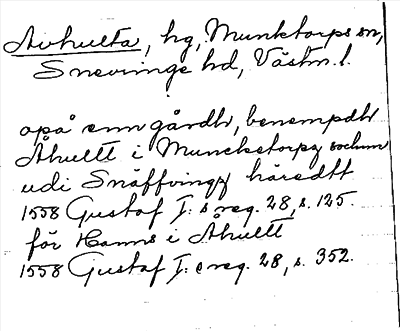 Avhulta, hg, Munktorps sn,
Snevringe hd, Västm. l.
opå enn gårdh, benempdh
Åhultt i Munckctorps sochnn
udi Snäffringx häredtt
1558 Gustaf I:s reg. 28, s. 125.
för Hanns i Åhultt
1558 Gustaf I:s reg. 28, s. 352.